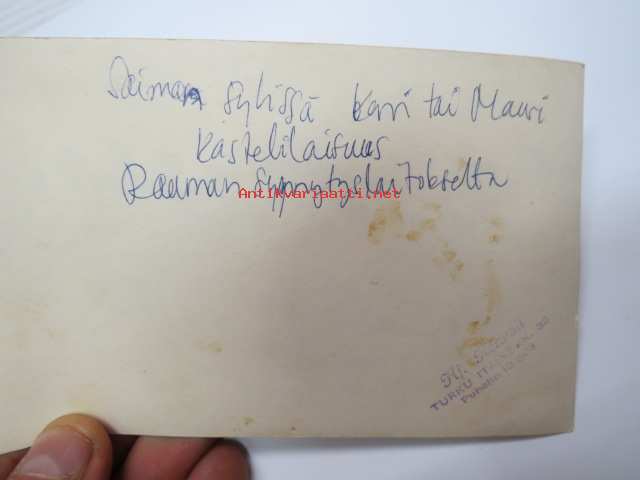 Saiman sylissä Kari tai Mauri
Kastetilaisuus
Rauman synnytyslaitokselta
Antikvariaatti.net
TURKU
Puhelin